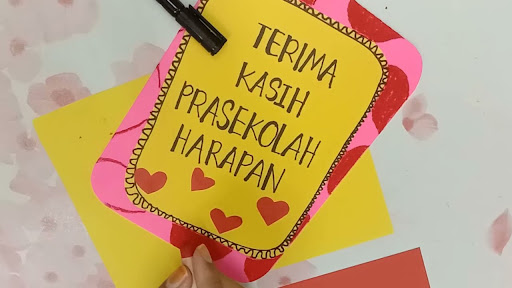 TERIMA
KASIH
PRASEKOLAH
HARAPAN